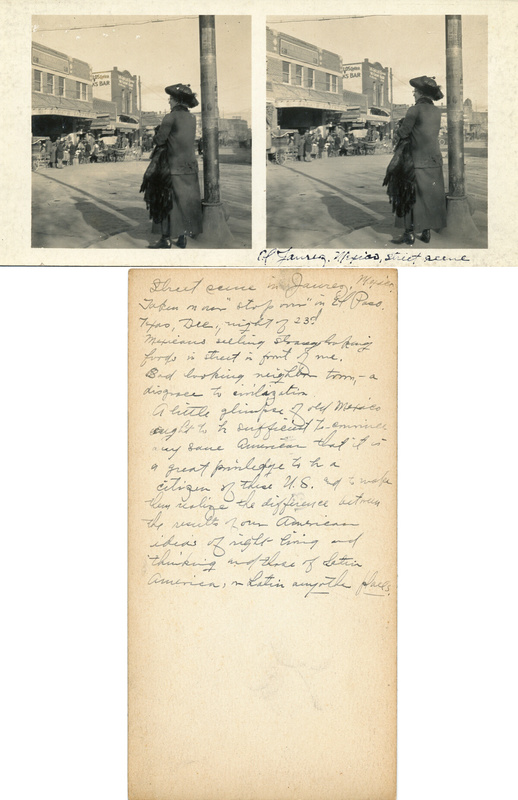 S BAR
S BAR
Cf Jaurez, Mexico, street scene
Street scene in Jaurez, Mexico
Taken on our "stop over" in El Paso,
Texas, Dec., night of 23d
Mexicans selling strange looking
foods in street in front of me.
Bad looking neighbor town, - a
disgrace to civilization
A little glimpse of old Mexico
ought to be sufficient to convince
any sane American that it is
a great priviledge to be a
citizen of these U.S. and to make
them realize the difference between
the results of our American
ideas of right living and
thinking and those of Latin
America, or Latin any other place.